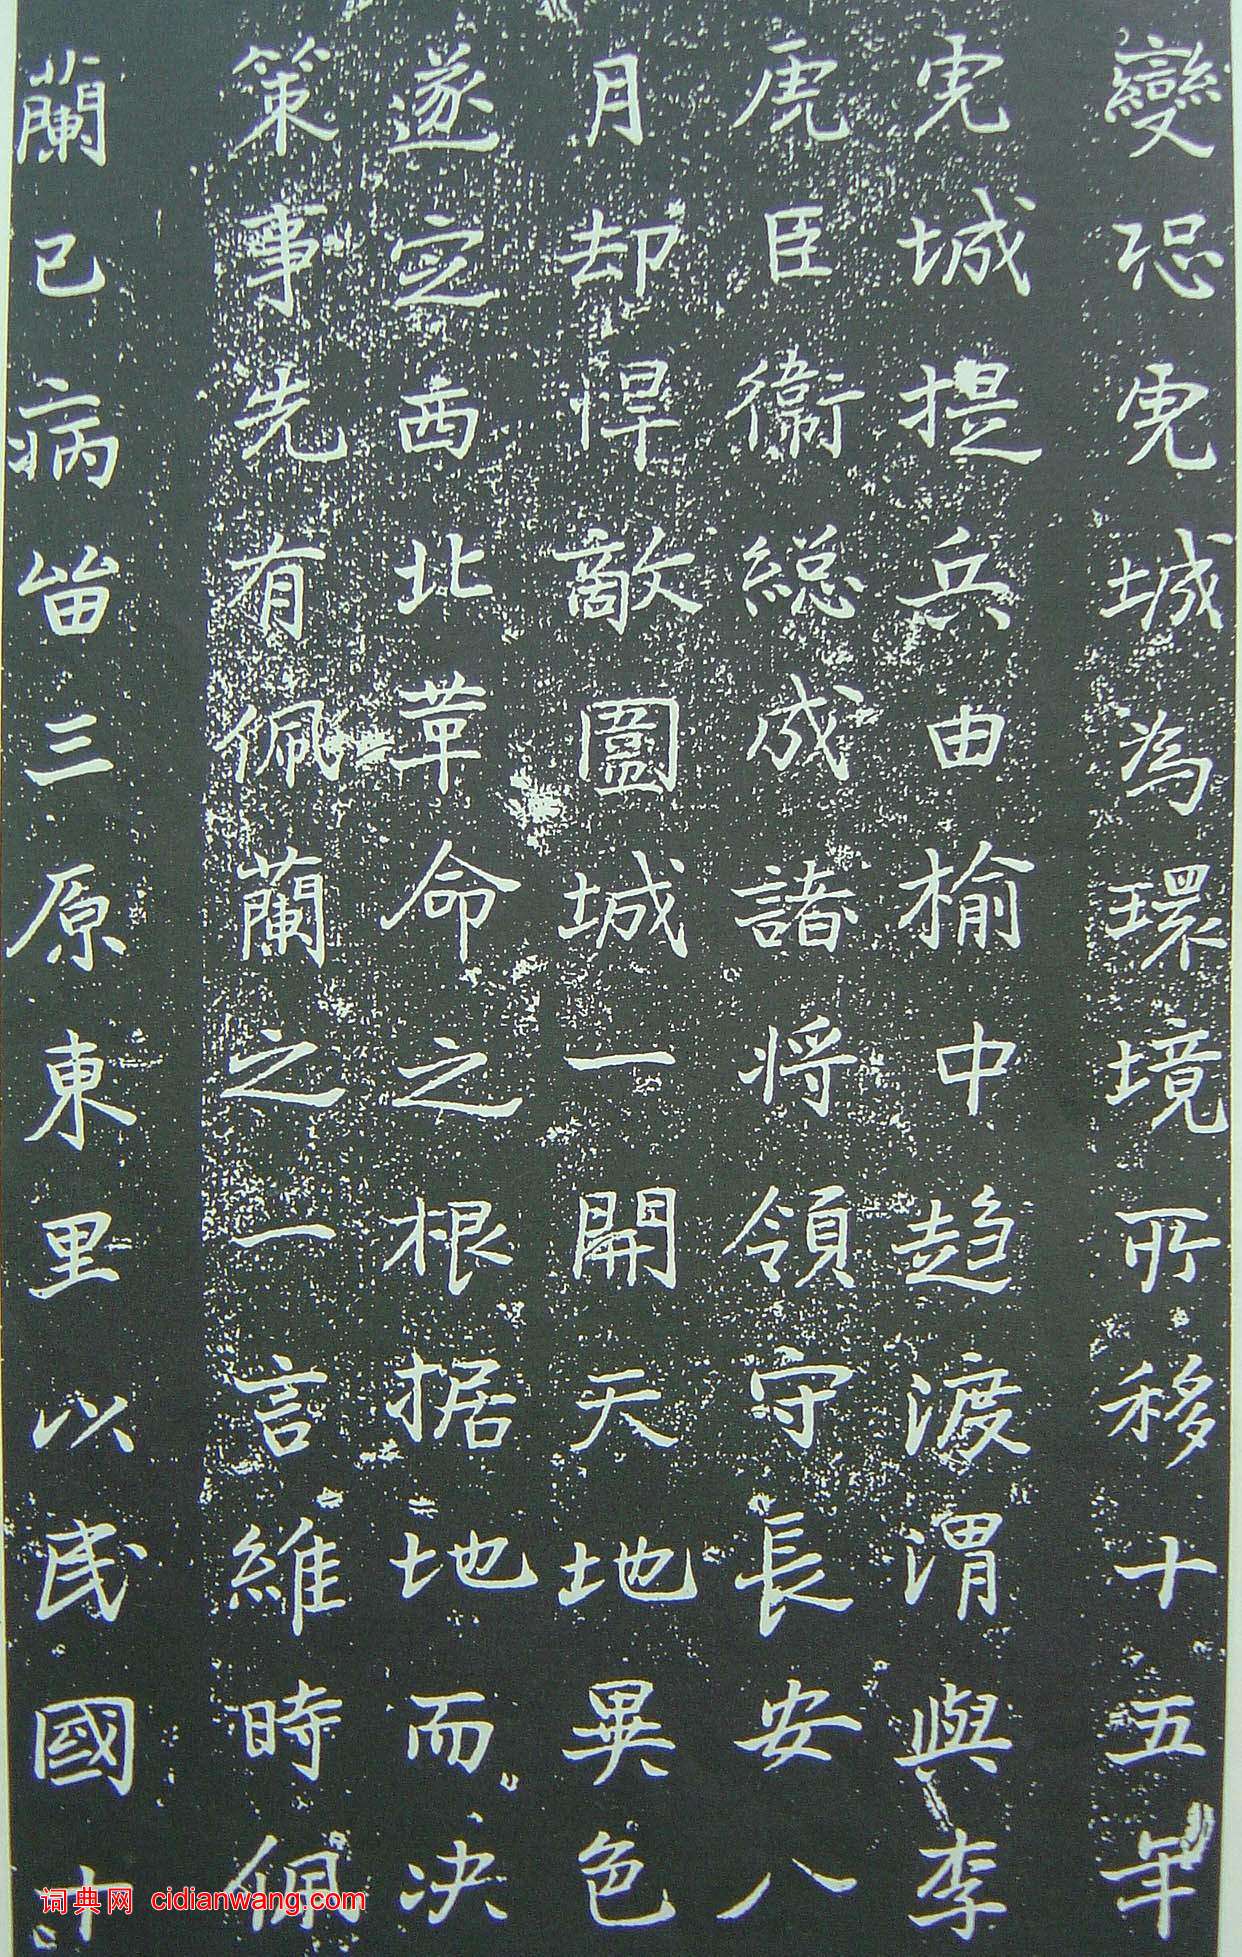 變恐虎城為環境所移十五年
虎城提兵由榆中趋渡渭與李
虎臣衛総成諸将領守長安八
月却悍敵圖城一開天地異色
遂定西北革命之根据地而決
策事先有佩蘭之一言維時佩
蘭已病甾三原東里以民國十
词典网 cidianwang.com